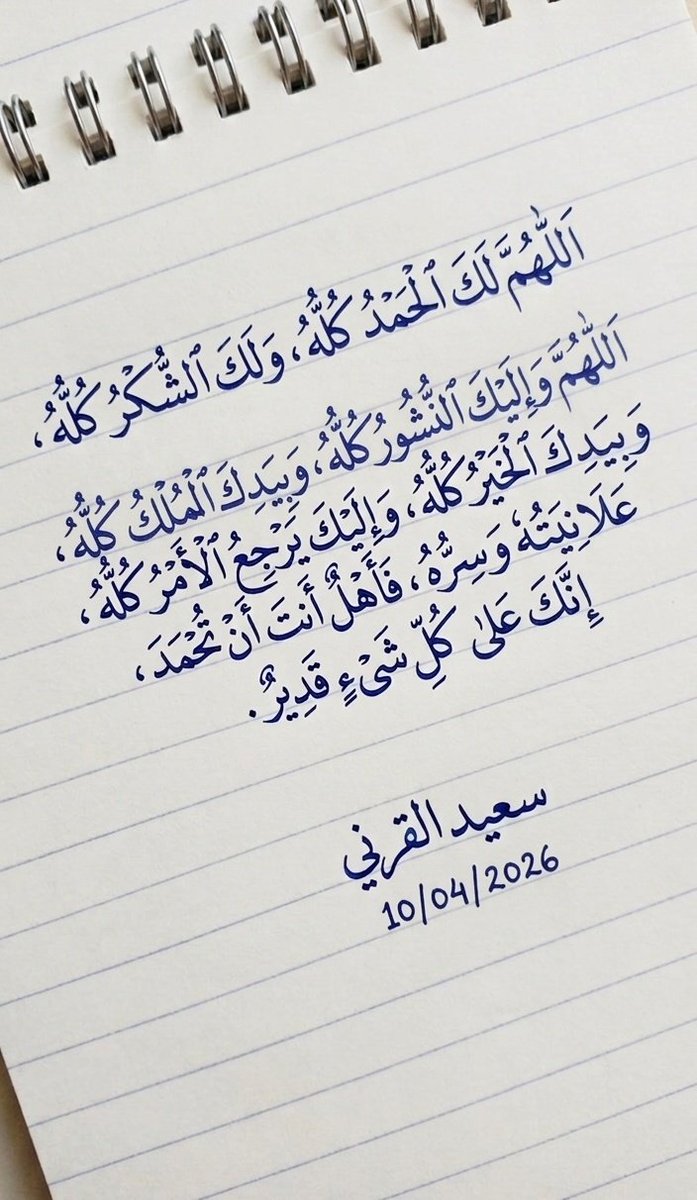 اَللّٰهُمَّ لَكَ ٱلْحَمْدُ كُلُّهُ، وَلَكَ ٱلشُّكْرُ كُلُّهُ،
اَللّٰهُمَّ وَإِلَيْكَ ٱلنُّشُورُ كُلُّهُ، وَبِيَدِكَ ٱلْمُلْكُ كُلُّهُ،
وَبِيَدِكَ ٱلْخَيْرُ كُلُّهُ، وَإِلَيْكَ يَرْجِعُ ٱلْأَمْرُ كُلُّهُ،
عَلَانِيَتُهُ وَسِرُّهُ، فَأَهْلٌ أَنتَ أَنْ تُحْمَدَ،
إِنَّكَ عَلىٰ كُلِّ شَىْءٍ قَدِيرٌ.
سعيد القرني
10/04/2026